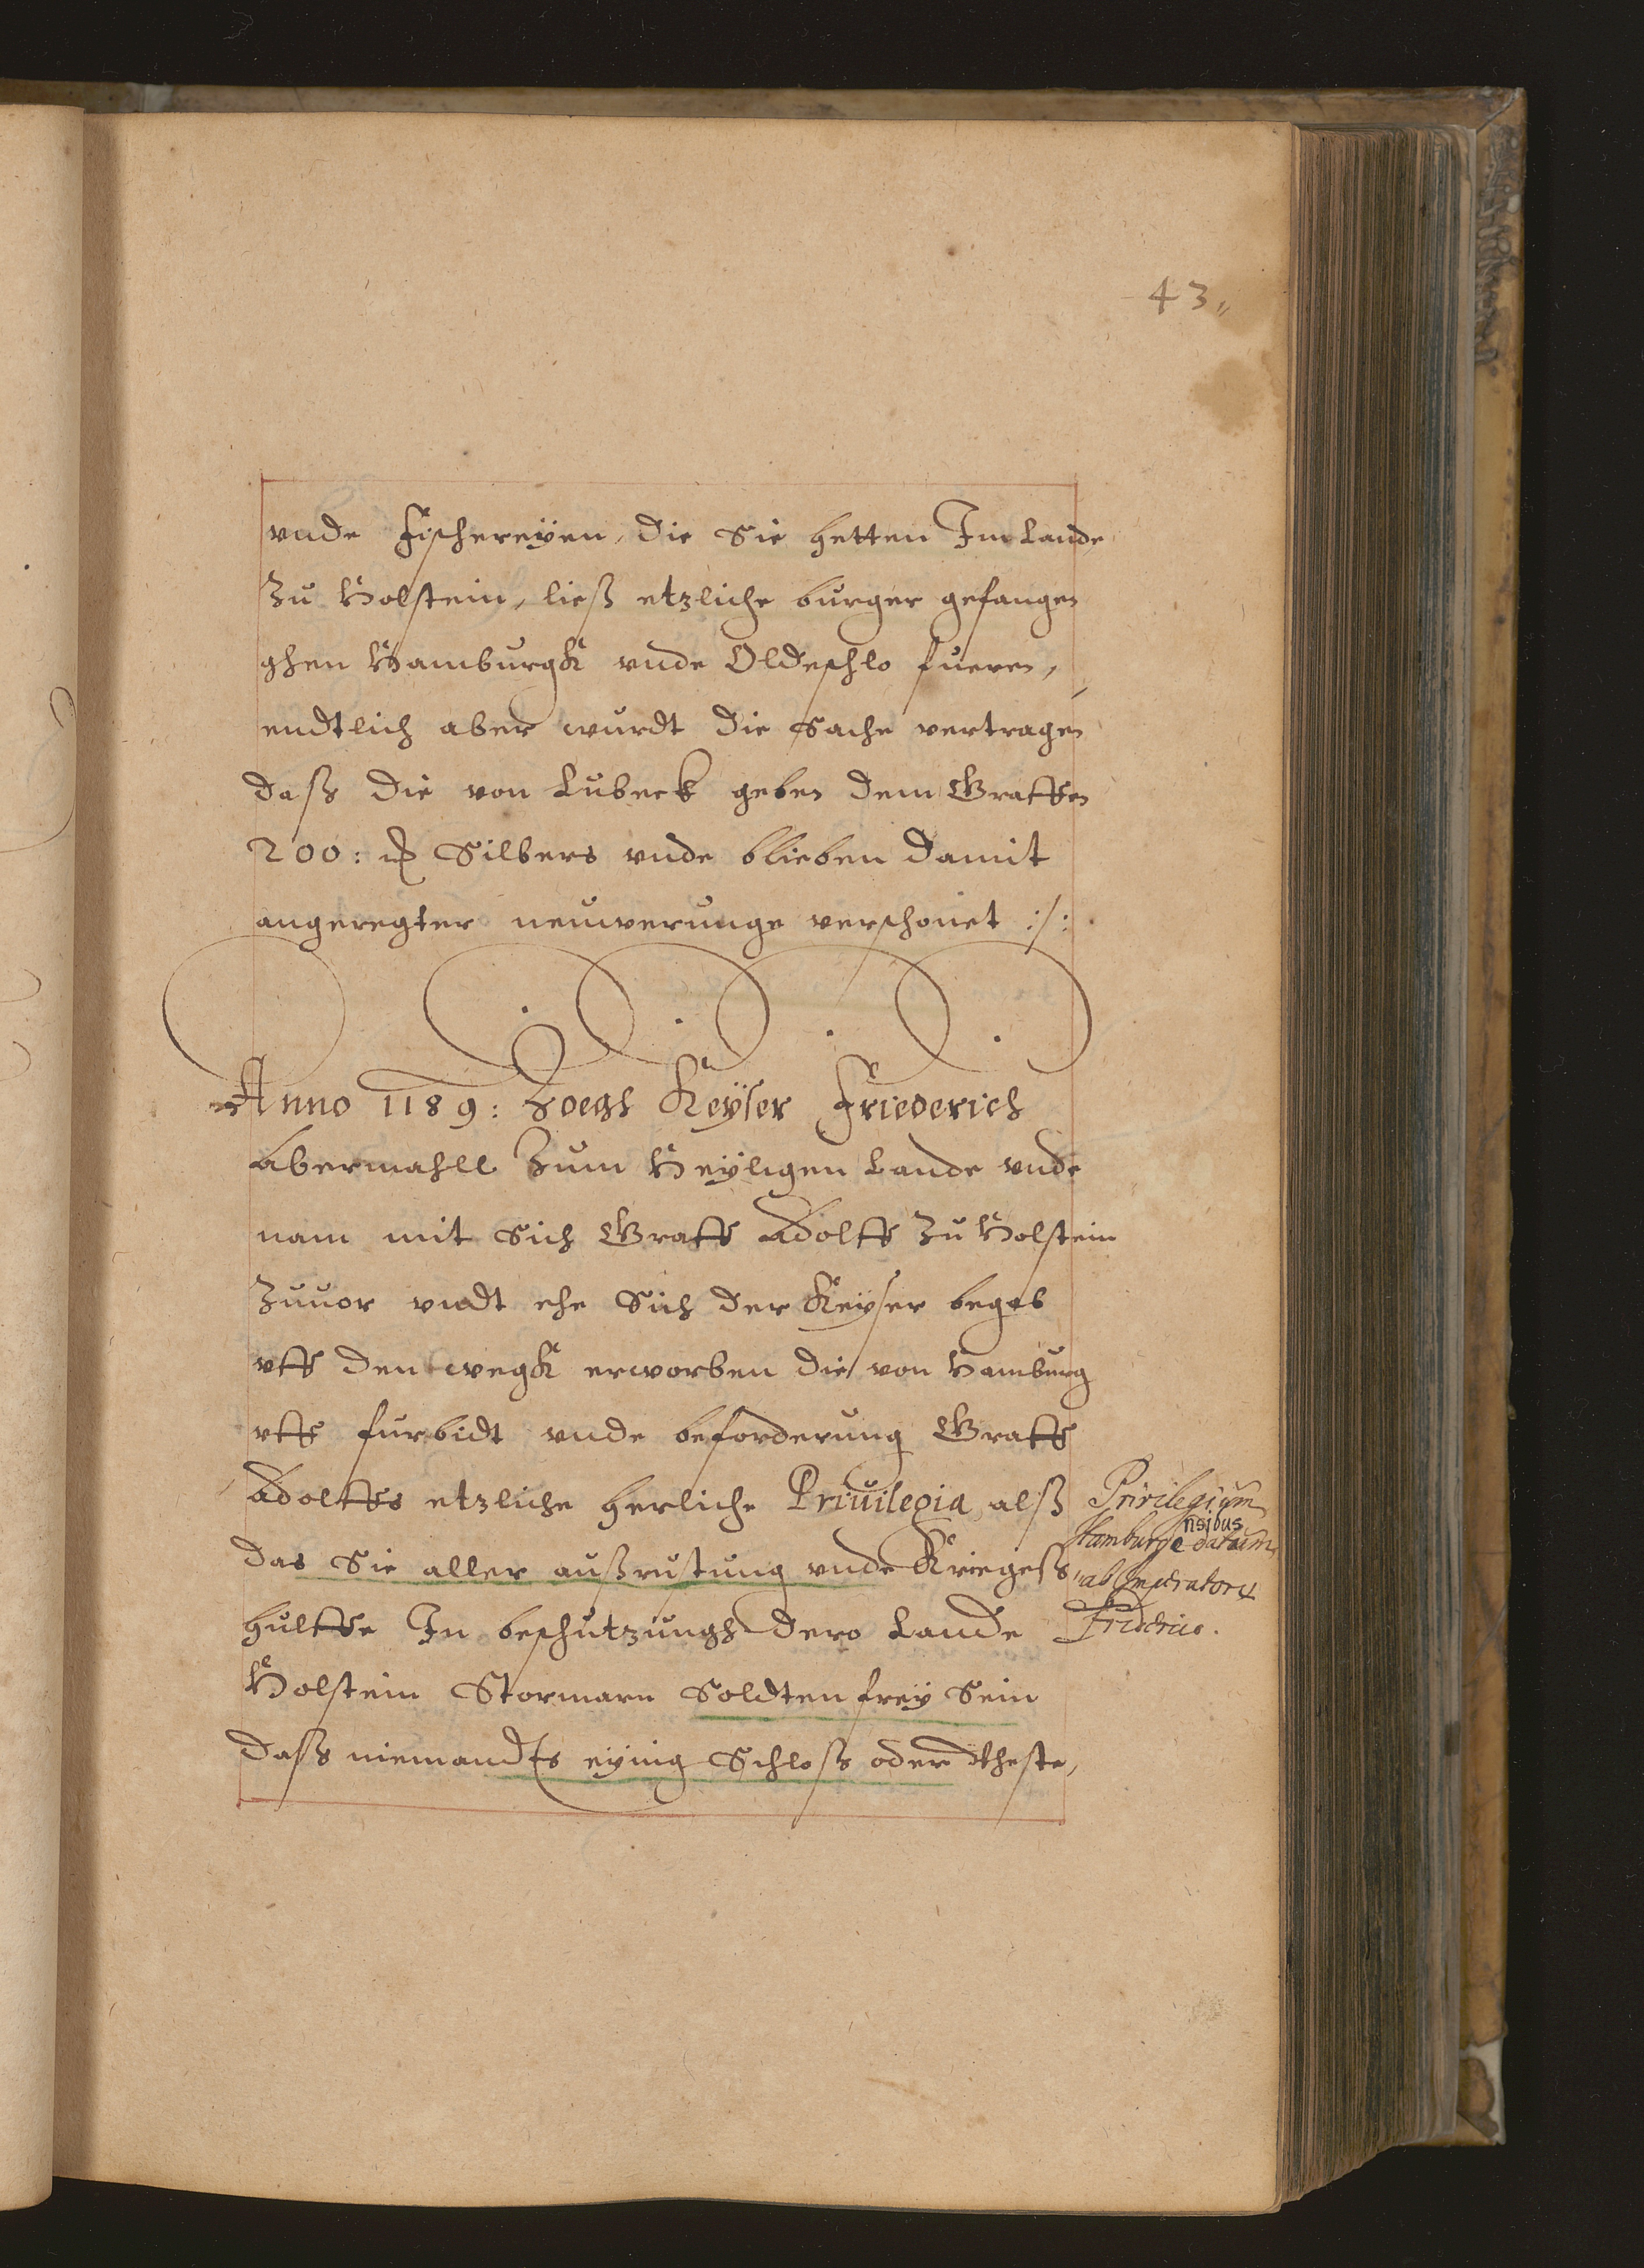 43,,
vnde Fischereÿen, die Sie hetten Im Lande
Zu Holstein, ließ etzliche burger gefangen
ghen Hamburgk vnde Oldeschlo fueren,
endtlich aber wurdt die Sache vertragen
daß die von Lubeck geben dem Graffen
200: Silbers vnde blieben damit
angeregter neuwerunge verschonet :/:
Anno 1189: Zoegh Keÿser Friederich
abermahll Zum Heÿligen Lande vnde
nam mit Sich Graff Adolff Zu Holstein
Zuuor vndt ehe Sich der Keÿser begab
vff den wegk erworben die von Hamburg
vff furbidt vnde beforderung Graff
Adolffs etzliche herliche Priuilegia, alß
das Sie aller außrustung vnde Krieges,
hulffe In beschutzungh dero Lande
Holstein Stormarn Soldten freÿ Sein
daß niemandts eÿnig Schloß oder Veste,
Privilegium
Hamburgensibus datum
ab Imperatore
Friderico.